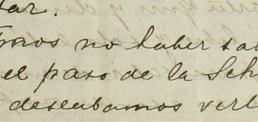 tar.
no haber sa
el paso de la Sch
deseabamos verl